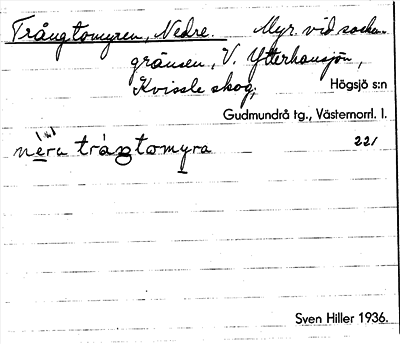 Trångtomyren, Nedre. Myr. vid socken-
gränsen, V. Ytterhansjön,
Kvissle skog,
Högsjö s:n
Gudmundrå tg., Västernorrl. l.
nera trångtomyra 221
Sven Hiller 1936.